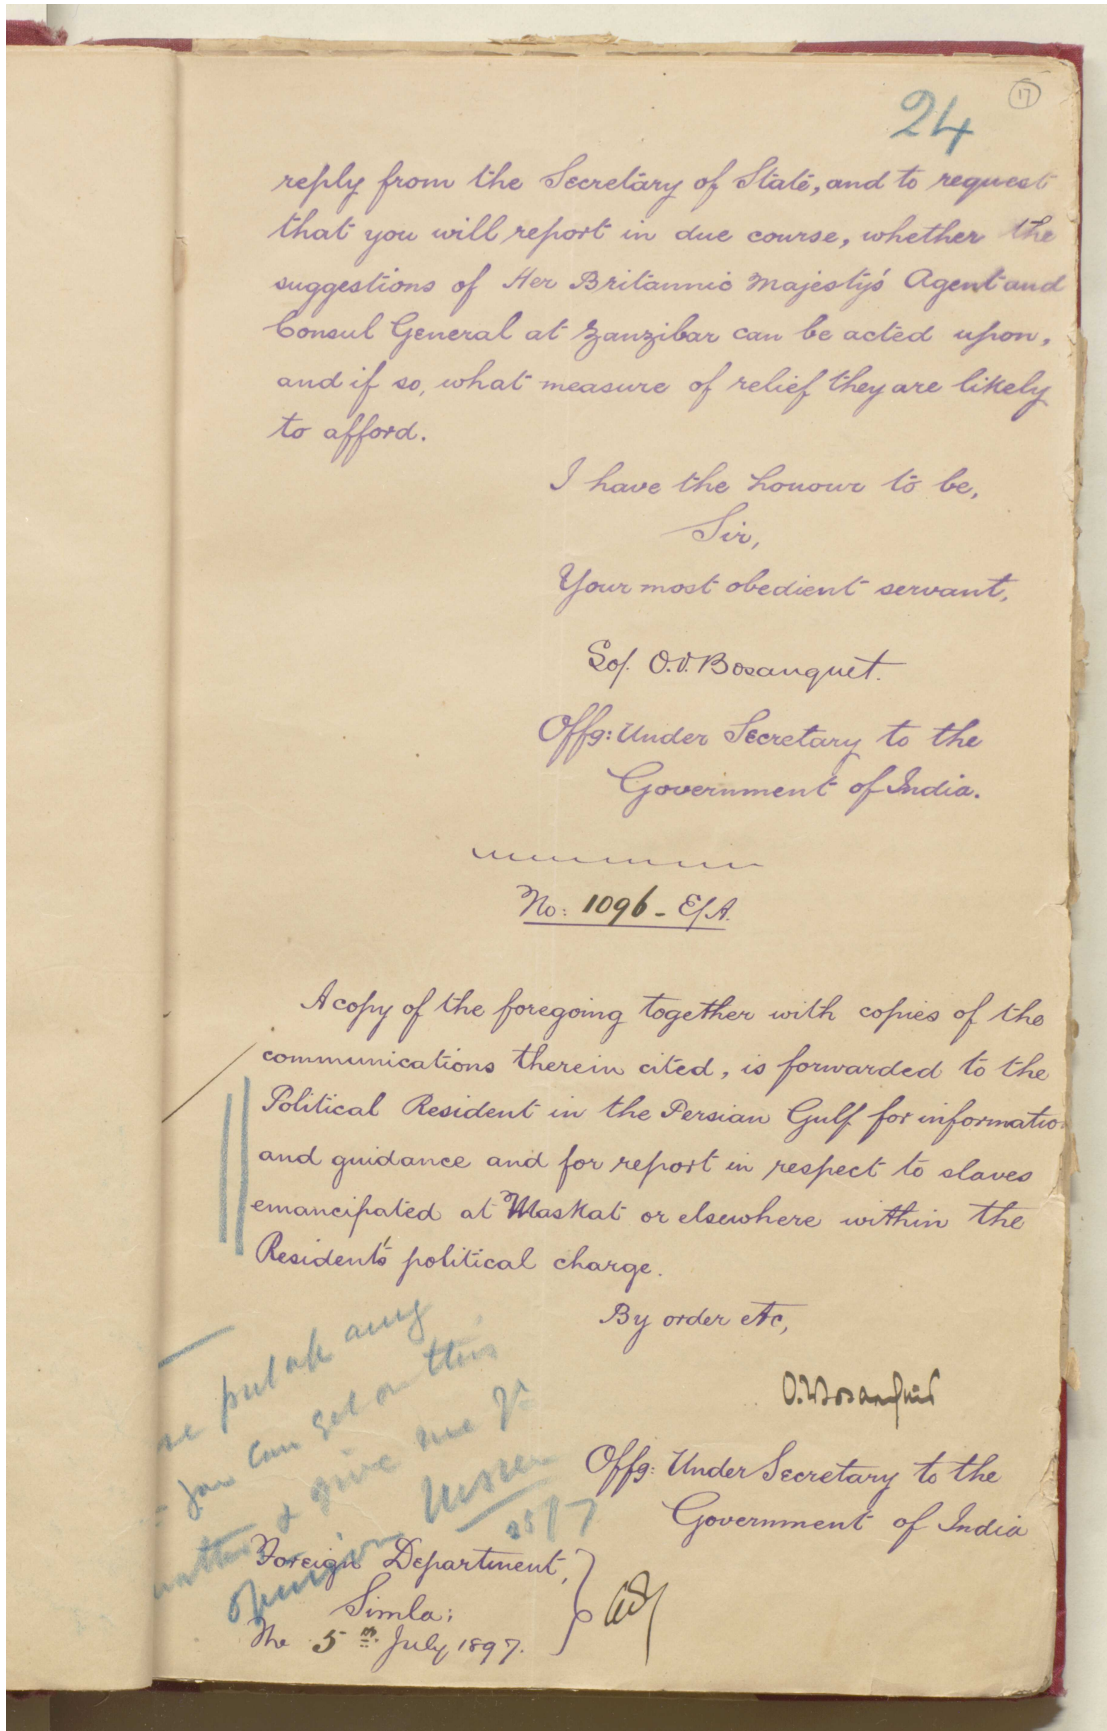 24
17
reply from the Secretary of State, and to request
that you will report in due course, whether the
suggestions of Her Britannic Majesty's Agent and
Consul General at Zanzibar can be acted upon,
and if so, what measure of relief they are likely
to afford.
I have the honour to be,
Sir,
Your most obedient servant,
Sd/. O.V. Bosanquet.
Offg: Under Secretary to the
Government of India.
No: 1096 - E/A.
A copy of the foregoing together with copies of the
communications therein cited, is forwarded to the
Political Resident in the Persian Gulf for informatio
and guidance and for report in respect to slaves
emancipated at Maskat or elsewhere within the
Resident's political charge.
By order etc,
O.V. Bosanquet
Offg: Under Secretary to the
Government of India
any
you can get on this
& give me
opinion
25/7
Foreign Department,
Simla;
The 5th July 1897.